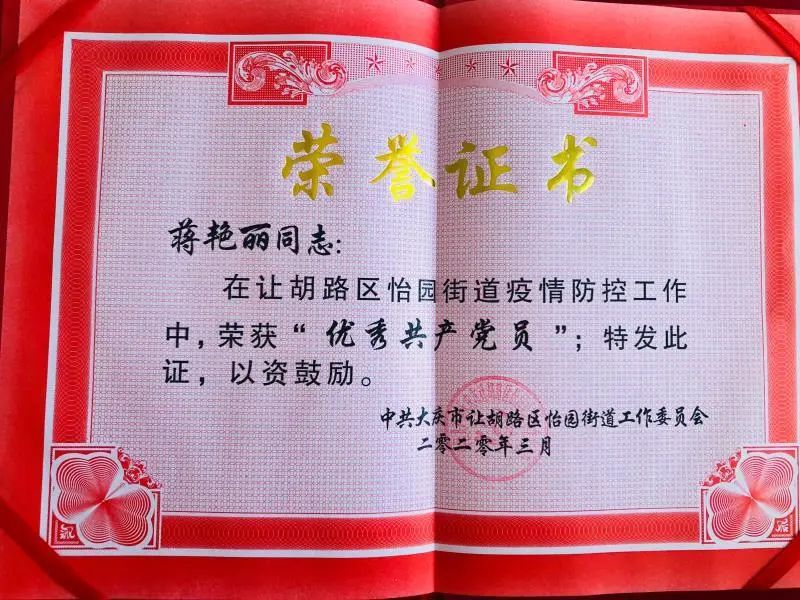 荣誉证书
蒋艳丽同志：
在让胡路区怡园街道疫情防控工作
中，荣获“优秀共产党员”；特发此
证，以资鼓励。
中共大庆市让胡路区怡园街道工作委员会
二零二零年三月